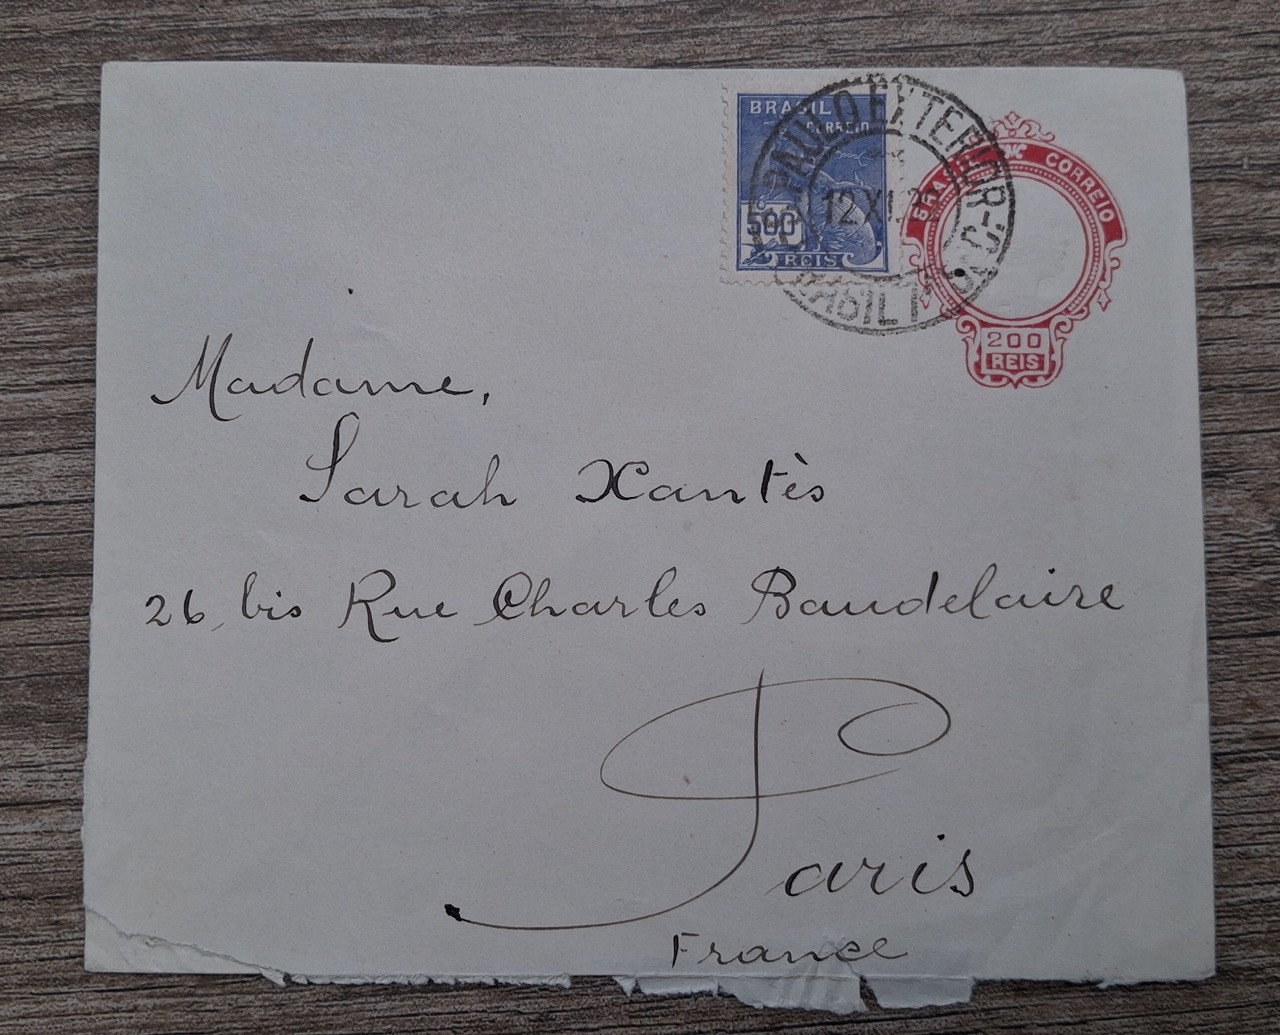 BRASIL
CORREIO
500
REIS
PAULO EXTERIOR
12 XI
BRASIL
BRASIL CORREIO
200
REIS
Madame,
Sarah Xantès
26 bis Rue Charles Baudelaire
Paris
France